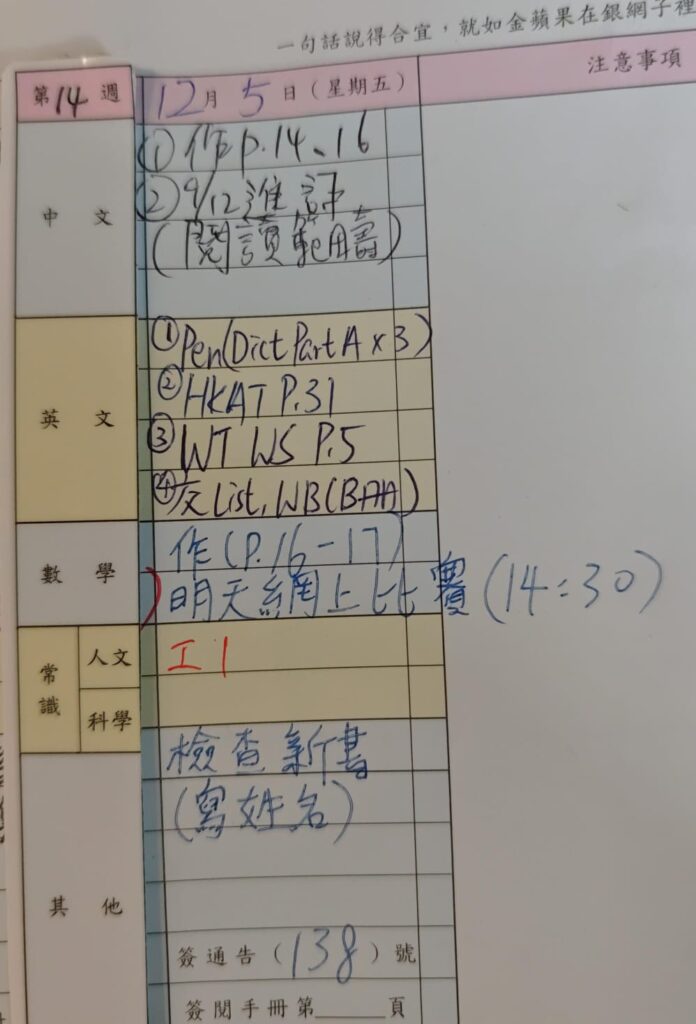 一句話說得合宜，就如金蘋果在銀網子裡
第14週 12月5日（星期五） 注意事項
中文
①作P.14、16
②9/12進評
(閱讀範疇)
英文
①Pen(Dict Part A x 3)
②HKAT P.31
③WT WS P.5
④反List, WB(B)
數學
作(P.16-17)
明天網上比賽(14:30)
常識
人文
工1
科學
其他
檢查新書
(寫姓名)
簽通告（138）號
簽閱手冊第____頁